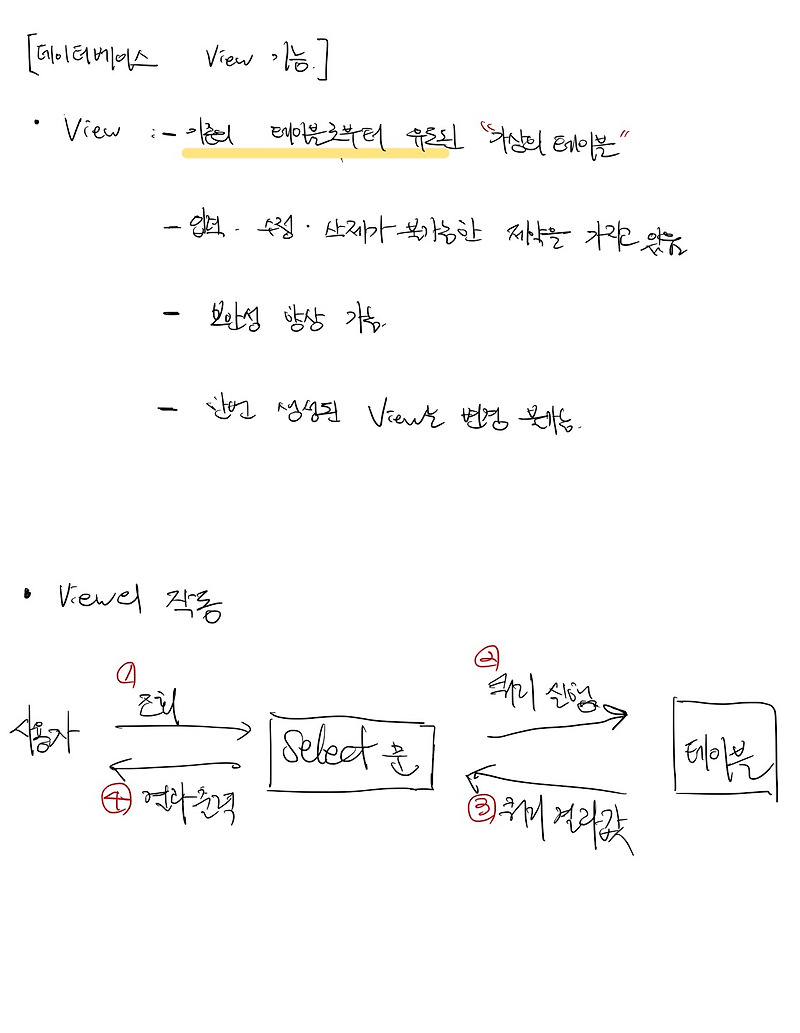 [데이터베이스 View 기능.]
• View :- 기존의 테이블로부터 유도된 "가상의 테이블"
- 입력 · 수정 · 삭제가 불가능한 제약을 가지고 있음
- 보안성 향상 가능.
- 한번 생성된 View는 변경 불가능.
• View의 작동
① 조회
② 쿼리 실행
사용자
Select 문
테이블
④ 결과 출력
③ 쿼리 결과값